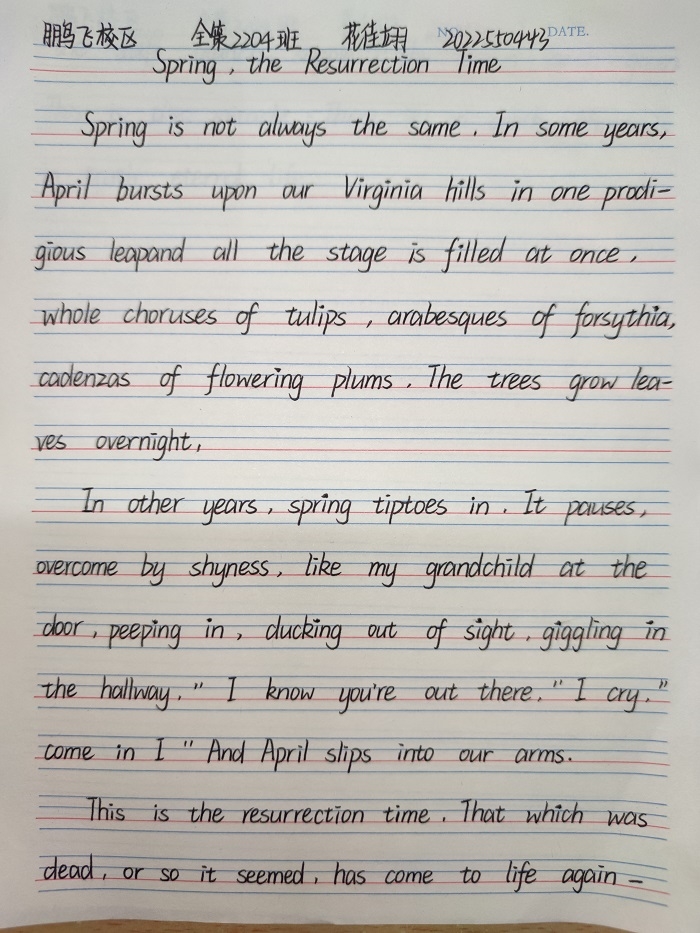 鹏飞校区 全集2204班 花佳翊 NO. 2022550443 DATE.
Spring, the Resurrection Time
Spring is not always the same. In some years,
April bursts upon our Virginia hills in one prodi-
gious leapand all the stage is filled at once,
whole choruses of tulips, arabesques of forsythia,
cadenzas of flowering plums. The trees grow lea-
ves overnight,
In other years, spring tiptoes in. It pauses,
overcome by shyness, like my grandchild at the
door, peeping in, ducking out of sight, giggling in
the hallway." I know you're out there." I cry."
come in I " And April slips into our arms.
This is the resurrection time. That which was
dead, or so it seemed, has come to life again-